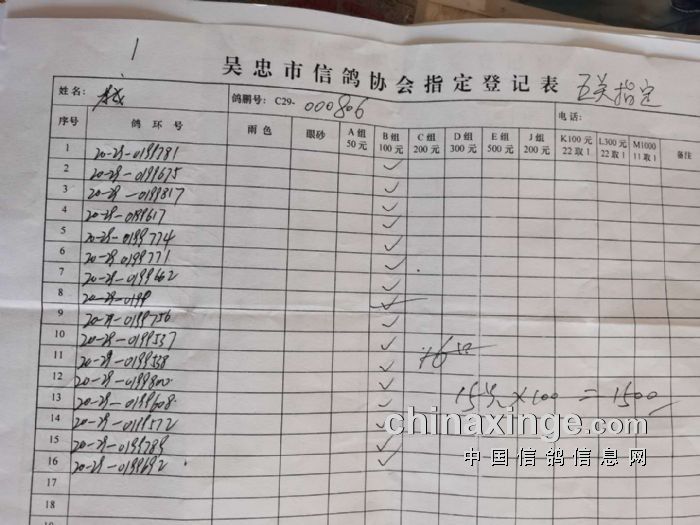 1
吴忠市信鸽协会指定登记表 五关指定
姓名： 鸽鹏号：C29- 000806 电话：
序号 鸽环号 雨色 眼砂 A组 50元 B组 100元 C组 200元 D组 300元 E组 500元 J组 200元 K100元 22取1 L300元 22取1 M1000 11取1 备注
1 20-29-0199781 ✓
2 20-29-0199675 ✓
3 20-29-0199817 ✓
4 20-29-0199617 ✓
5 20-29-0199774 ✓
6 20-29-0199771 ✓
7 20-29-0199662 ✓
8 20-29-0199 ✓
9 20-29-0199756 ✓
10 20-29-0199537 ✓
11 20-29-0199538 ✓
12 20-29-0199800 ✓
13 20-29-0199608 ✓ 15 × 100 = 1500
14 20-29-0199572 ✓
15 20-29-0199789 ✓
16 20-29-0199692 ✓
17
18
chinaxinge.com
中国信鸽信息网